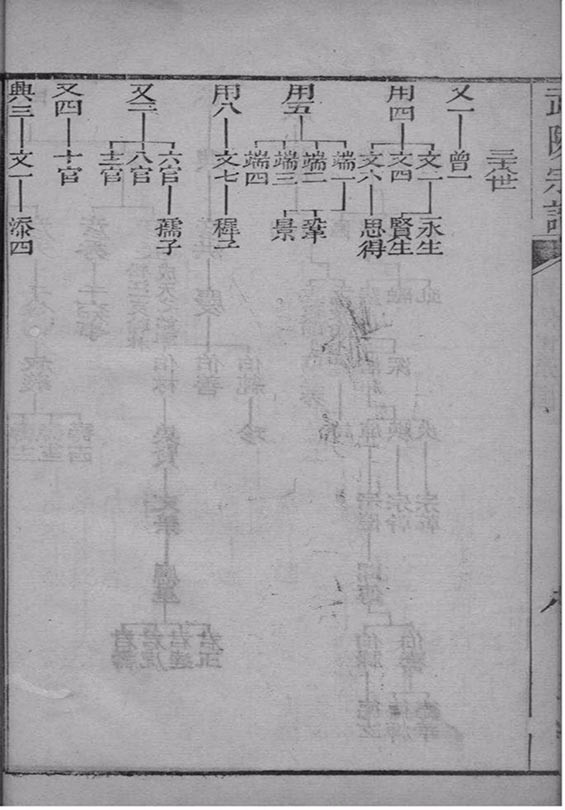 武陵宗譜
世
又一 曾一
用四 文一 永生
文四 賢生
文六 思得
用五 端一
端二
端三 景
端四
用八 文七 穉子
又三 六官 孺子
八官
十二官
又四 十官
興三 文一 添四